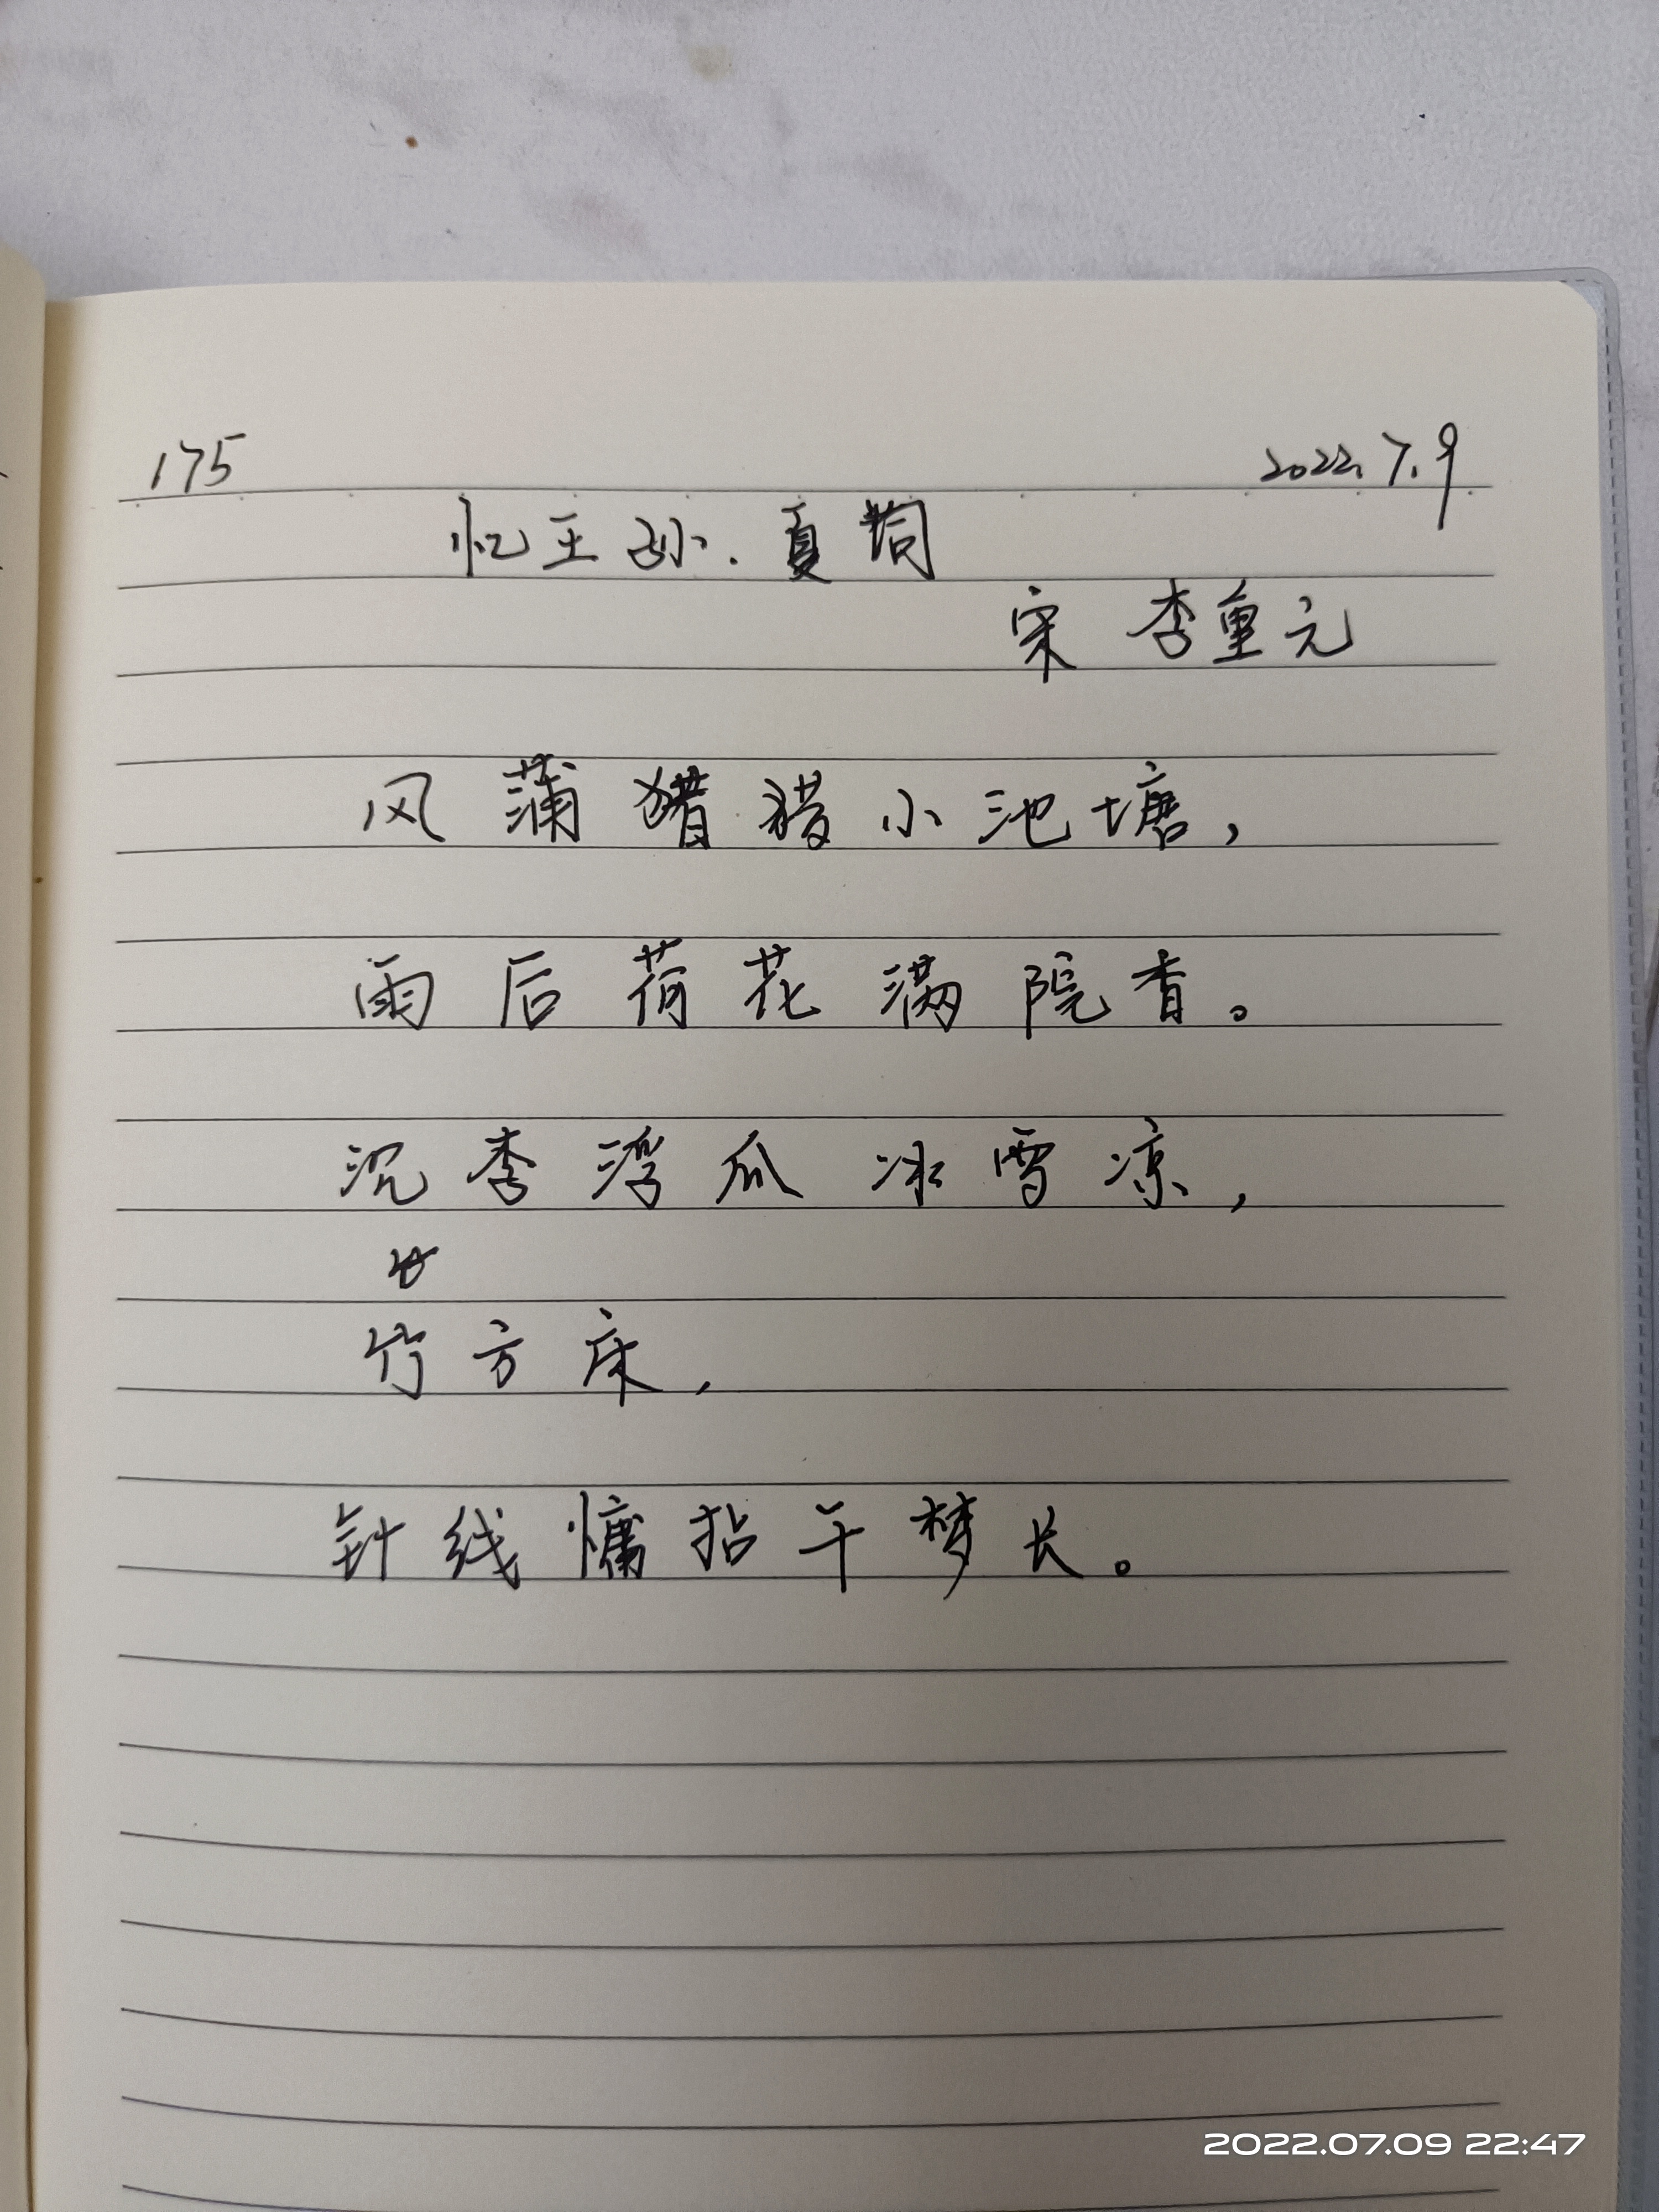 175 2022.7.9
忆王孙.夏词
宋 李重元
风蒲猎猎小池塘,
雨后荷花满院香。
沉李浮瓜冰雪凉,
竹方床,
针线慵拈午梦长。
2022.07.09 22:47